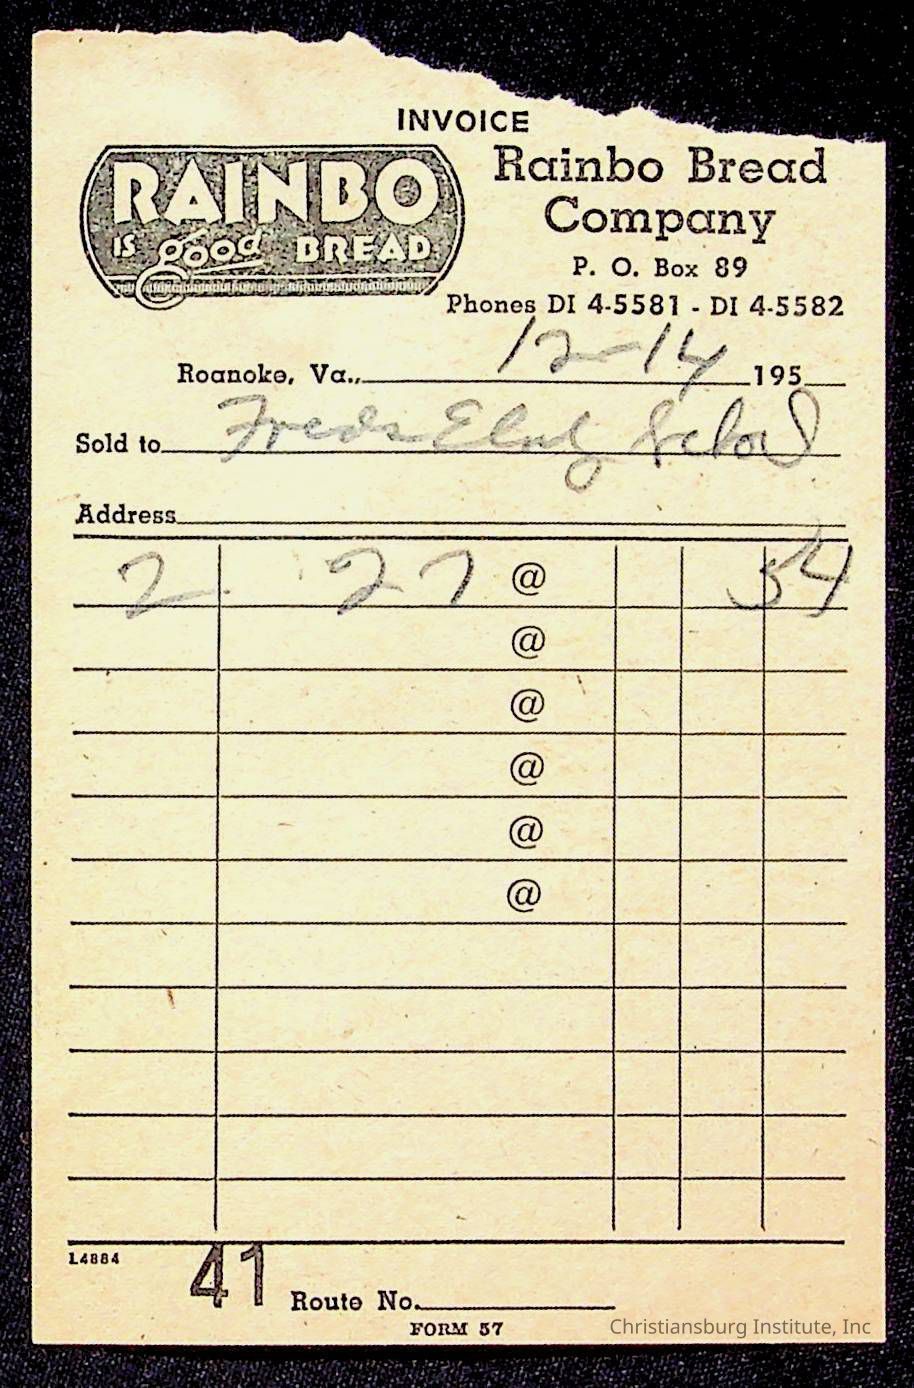 INVOICE
RAINBO
IS good BREAD
Rainbo Bread
Company
P. O. Box 89
Phones DI 4-5581 - DI 4-5582
Roanoke, Va., 12-14 195
Sold to School
Address
2 27 @ 54
@
@
@
@
@
L4884
41 Route No.
FORM 57
Christiansburg Institute, Inc